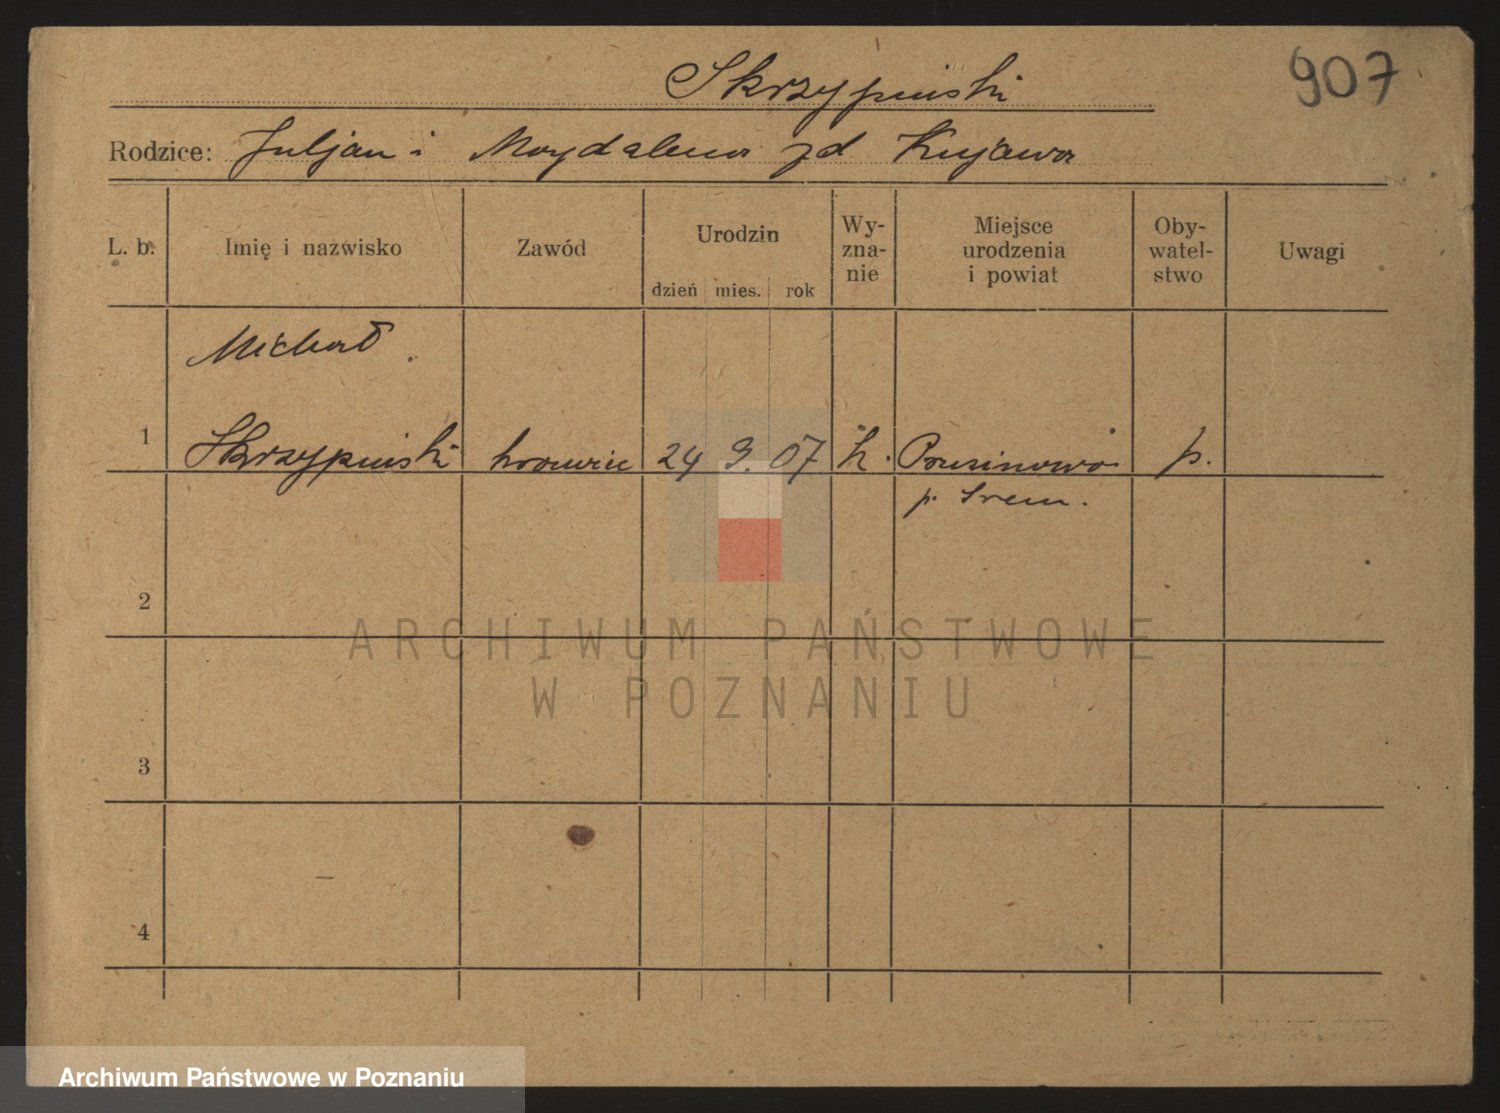 Skrzypiński
907
Rodzice: Juljan i Magdalena zd Kujawa
L. b.
Imię i nazwisko
Zawód
Urodzin
dzień mies. rok
Wy-
zna-
nie
Miejsce
urodzenia
i powiat
Oby-
watel-
stwo
Uwagi
Michał
1 Skrzypiński 24 9. 07 k. Brusinowo p.
p. Śrem.
2
ARCHIWUM PAŃSTWOWE
W POZNANIU
3
4
Archiwum Państwowe w Poznaniu